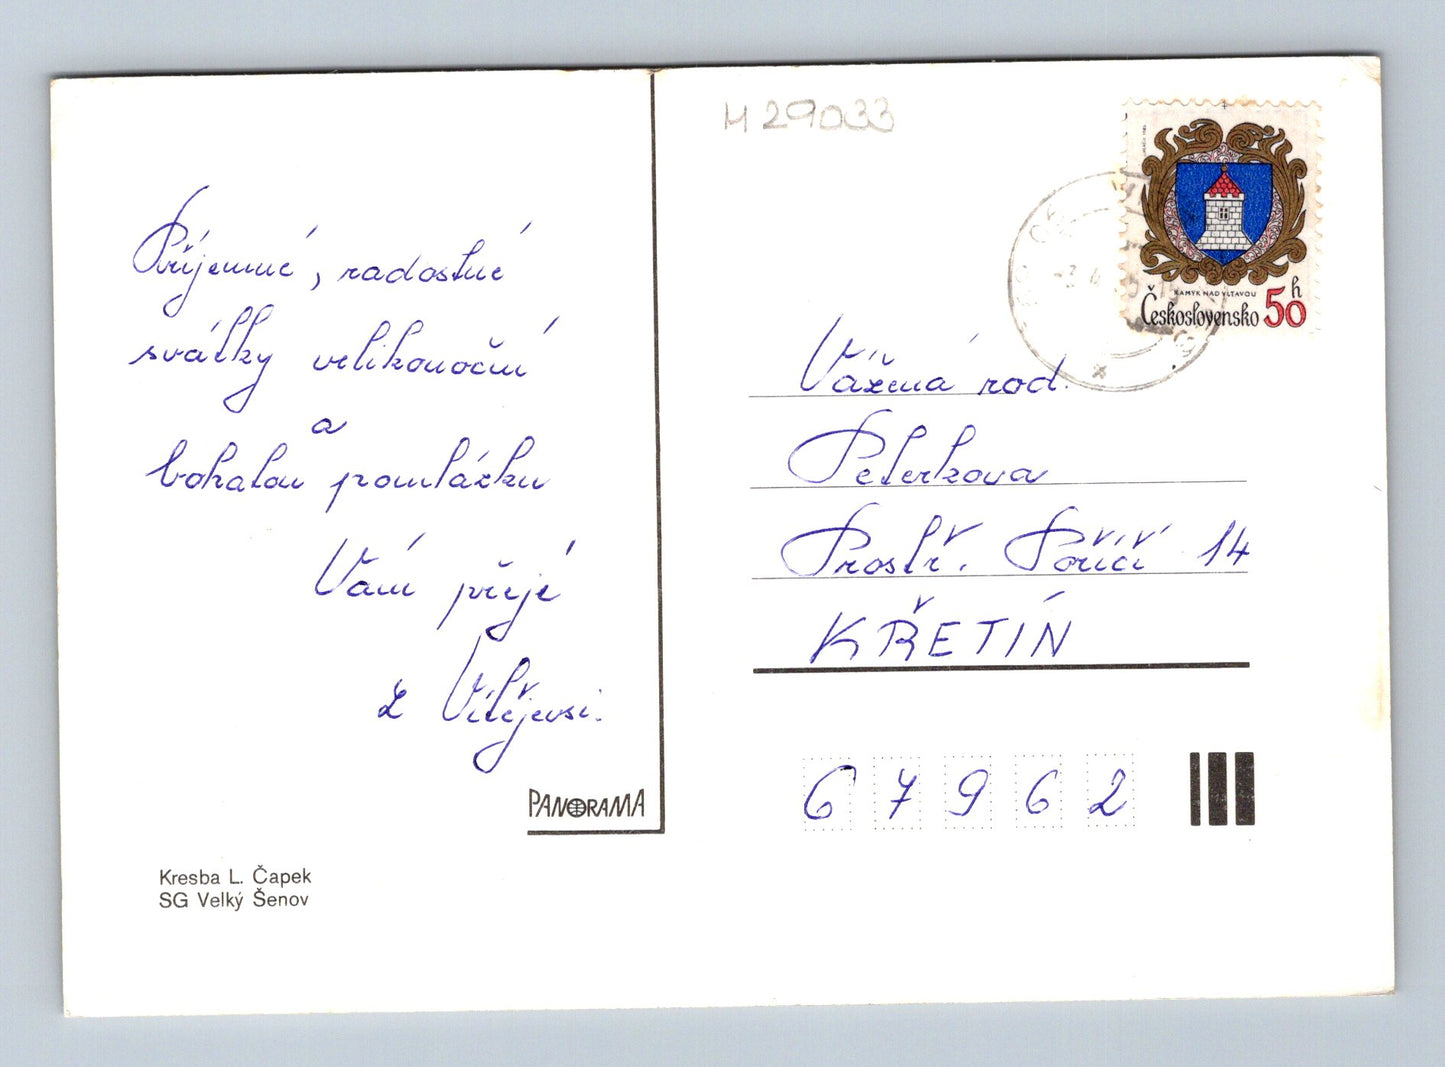 Příjemné, radostné
svátky velikonoční
a
bohatou pomlázku
Vám přeje
PANORAMA
Kresba L. Čapek
SG Velký Šenov
M 29033
KAMÝK NAD VLTAVOU
Československo 50 h
Vážená rod.
Peterkova
Prostř. Poříčí 14
KŘETÍN
67962